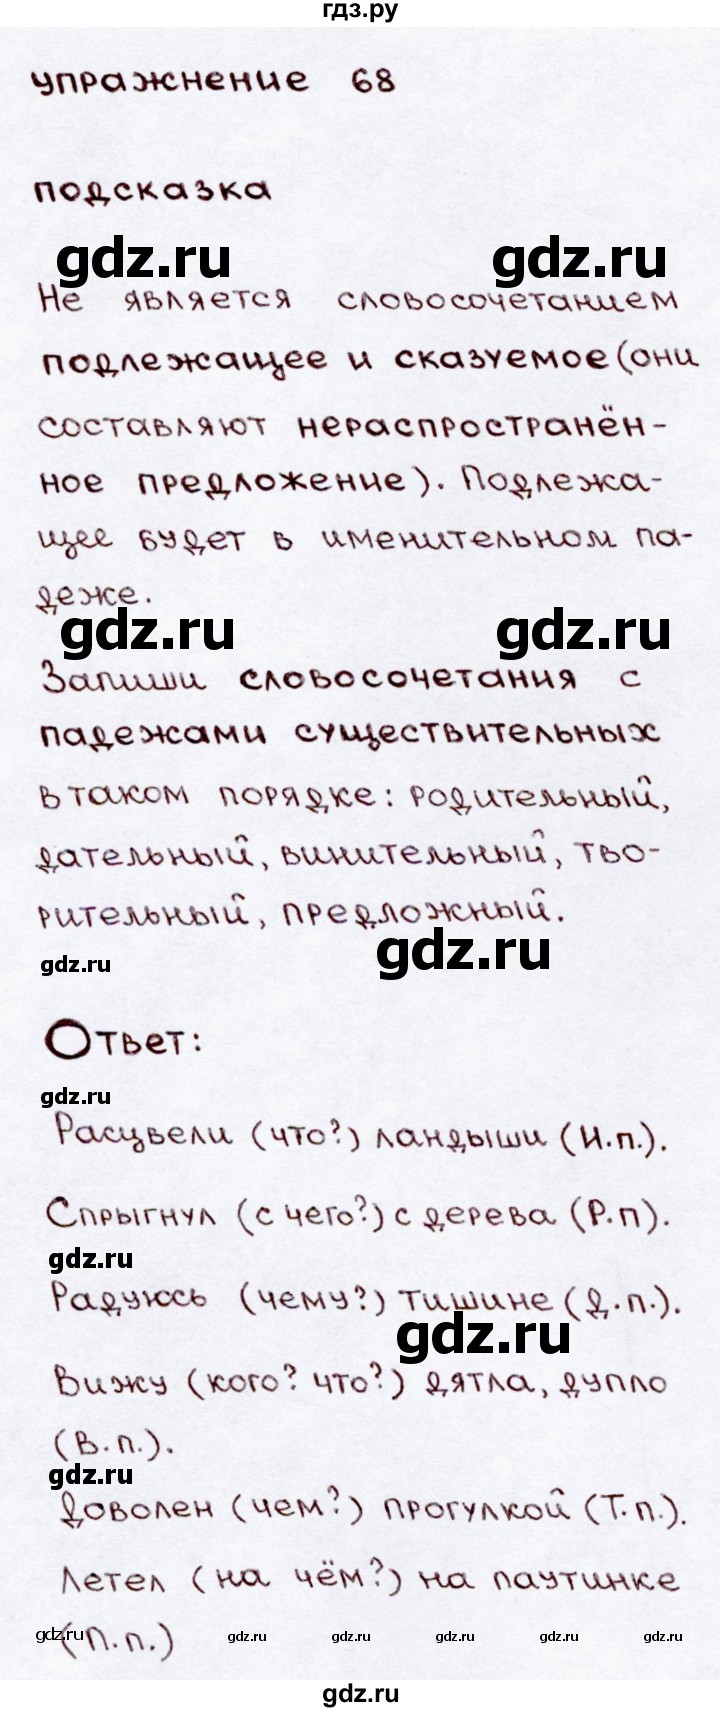 гдз.ру
упражнение 68
подсказка
gdz.ru gdz.ru
Не является словосочетанием
подлежащее и сказуемое (они
составляют нераспространён-
ное предложение). Подлежа-
щее будет в именительном па-
деже.
gdz.ru gdz.ru
Запиши словосочетания с
падежами существительных
в таком порядке: родительный,
дательный, винительный, тво-
рительный, предложный.
gdz.ru gdz.ru
Ответ:
gdz.ru
Расцвели (что?) ландыши (И.п.).
Спрыгнул (с чего?) с дерева (Р.п).
gdz.ru
Радуюсь (чему?) тишине (Д.п.).
gdz.ru
Вижу (кого? что?) дятла, дупло
(В.п.).
gdz.ru
Доволен (чем?) прогулкой (Т.п.).
Летел (на чём?) на паутинке
(П.п.)
gdz.ru gdz.ru gdz.ru gdz.ru gdz.ru gdz.ru
gdz.ru